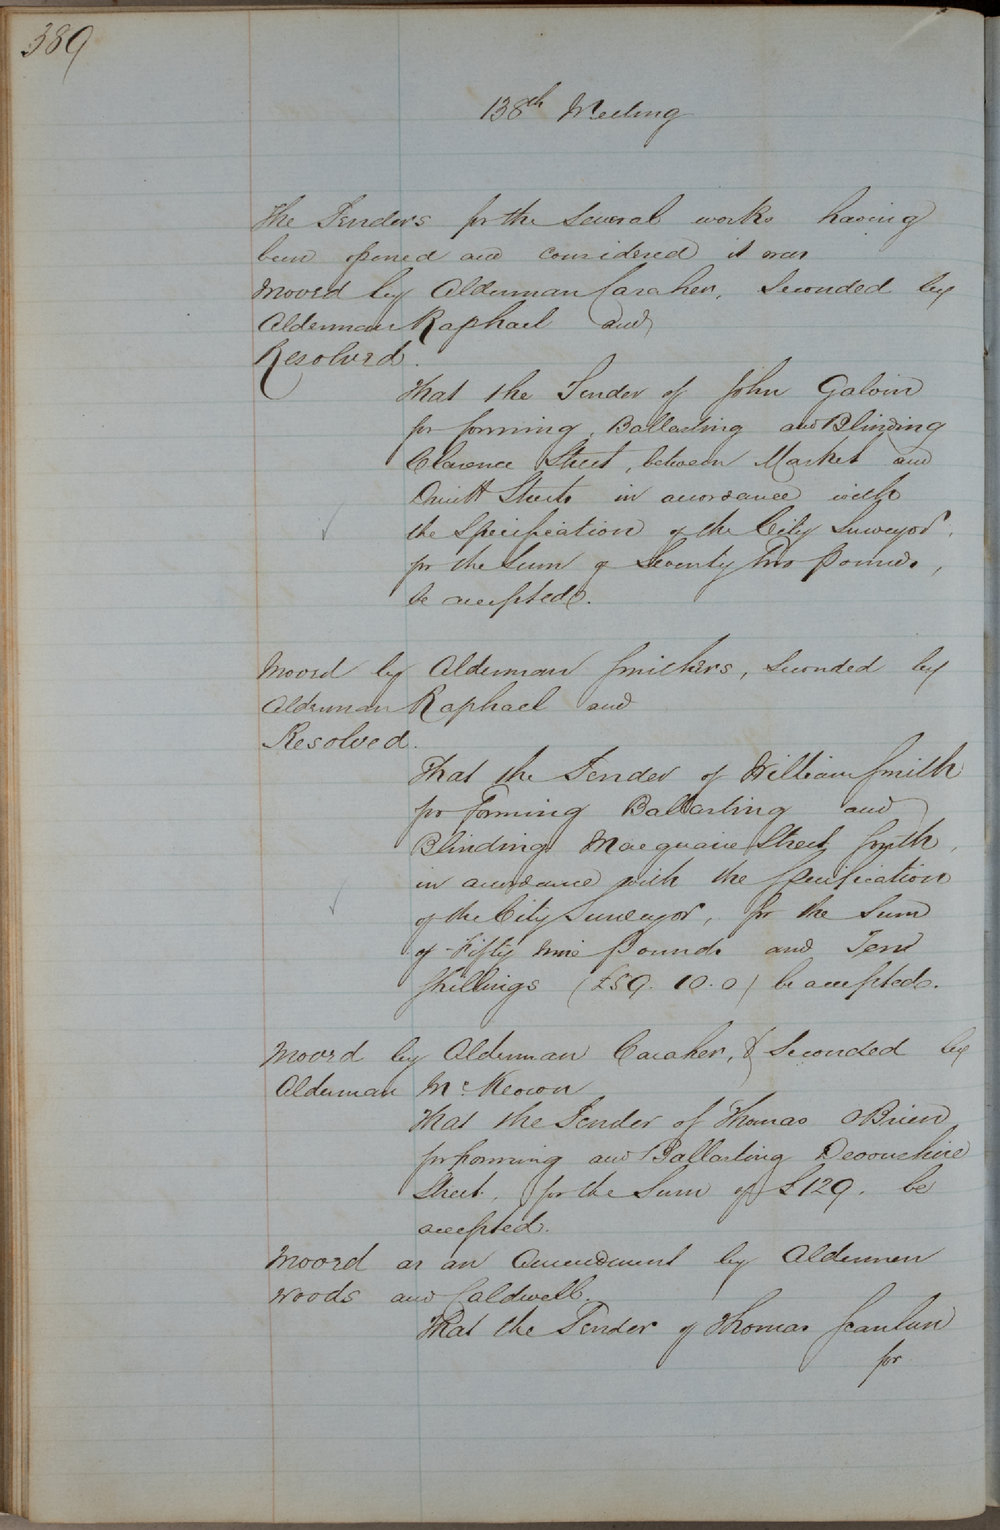 389
138th Meeting
The Tenders for the Several works having
been opened and considered it was
Moved by Alderman Caraher, Seconded by
Alderman Raphael and
Resolved.
That the Tender of John Galvin
for forming, Ballasting and Blinding
Clarence Street, between Market and
Druitt Streets in accordance with
the Specification of the City Surveyor,
for the Sum of Seventy Two pounds,
be accepted.
Moved by Alderman Smithers, Seconded by
Alderman Raphael and
Resolved.
That the Tender of William Smith
for Forming Ballasting and
Blinding Macquarie Street South,
in accordance with the Specification
of the City Surveyor, for the Sum
of Fifty nine Pounds and Ten
Shillings (£59.10.0) be accepted.
Moved by Alderman Caraher, & Seconded by
Alderman McKeown
That the Tender of Thomas OBrien
for forming and Ballasting Devonshire
Street, for the Sum of £129. be
accepted.
Moved as an Amendment by Aldermen
Woods and Caldwell.
That the Tender of Thomas Scanlan
for